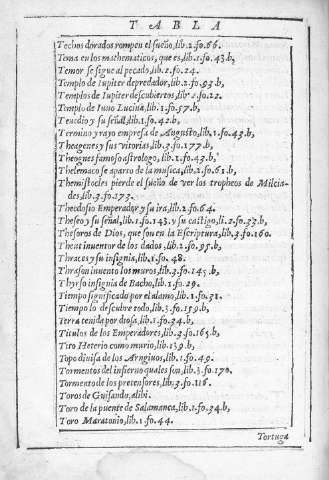 TABLA
Techos dorados rompen el sueño, lib.2.fo.66.
Tema en los mathematicos, que es, lib.1.fo.43.b,
Temor se sigue al pecado, lib.2.fo.24.
Templo de Iupiter depredador, lib.2.fo.93.b,
Templos de Iupiter descubiertos, lib.2.fo.22.
Templo de Iuno Lucina, lib.1.fo.57.b,
Teucdio y su señal, lib.1.fo.42.b,
Termino y rayo empresa de Augusto, lib.1.fo.43.b,
Theagenes y sus vitorias, lib.3.fo.177.b,
Theognes famoso astrologo, lib.1.fo.43.b,
Thelemaco se aparto de la musica, lib.2.fo.61.b,
Themistocles pierde el sueño de ver los tropheos de Milcia-
des, lib.3.fo.173.
Theodosio Emperador y su ira, lib.2.fo.64.
Theseo y su señal, lib.1.fo.143. y su castigo, li.2.fo.33.b,
Thesoros de Dios, que son en la Escriptura, lib.3.fo.160.
Theut inuentor de los dados, lib.2.fo.95.b,
Thraces y su insignia, lib.1.fo.48.
Thrason inuento los muros, lib.3.fo.145.b,
Thyrso insignia de Bacho, lib.1.fo.29.
Tiempo significado por el alamo, lib.1.fo.31.
Tiempo lo descubre todo, lib.3.fo.159.b,
Terra tenida por diosa, lib.1.fo.34.b,
Titulos de los Emperadores, lib.3.fo.165.b,
Tito Heterio como murio, lib.139.b,
Topo diuisa de los Arngiuos, lib.1.fo.49.
Tormentos del infierno quales son, lib.3.fo.170.
Tormento de los pretensores, lib.3.fo.116.
Toros de Guisando, alibi.
Toro de la puente de Salamanca, lib.1.fo.34.b,
Toro Maratonio, lib.1.fo.44.
Tortuga